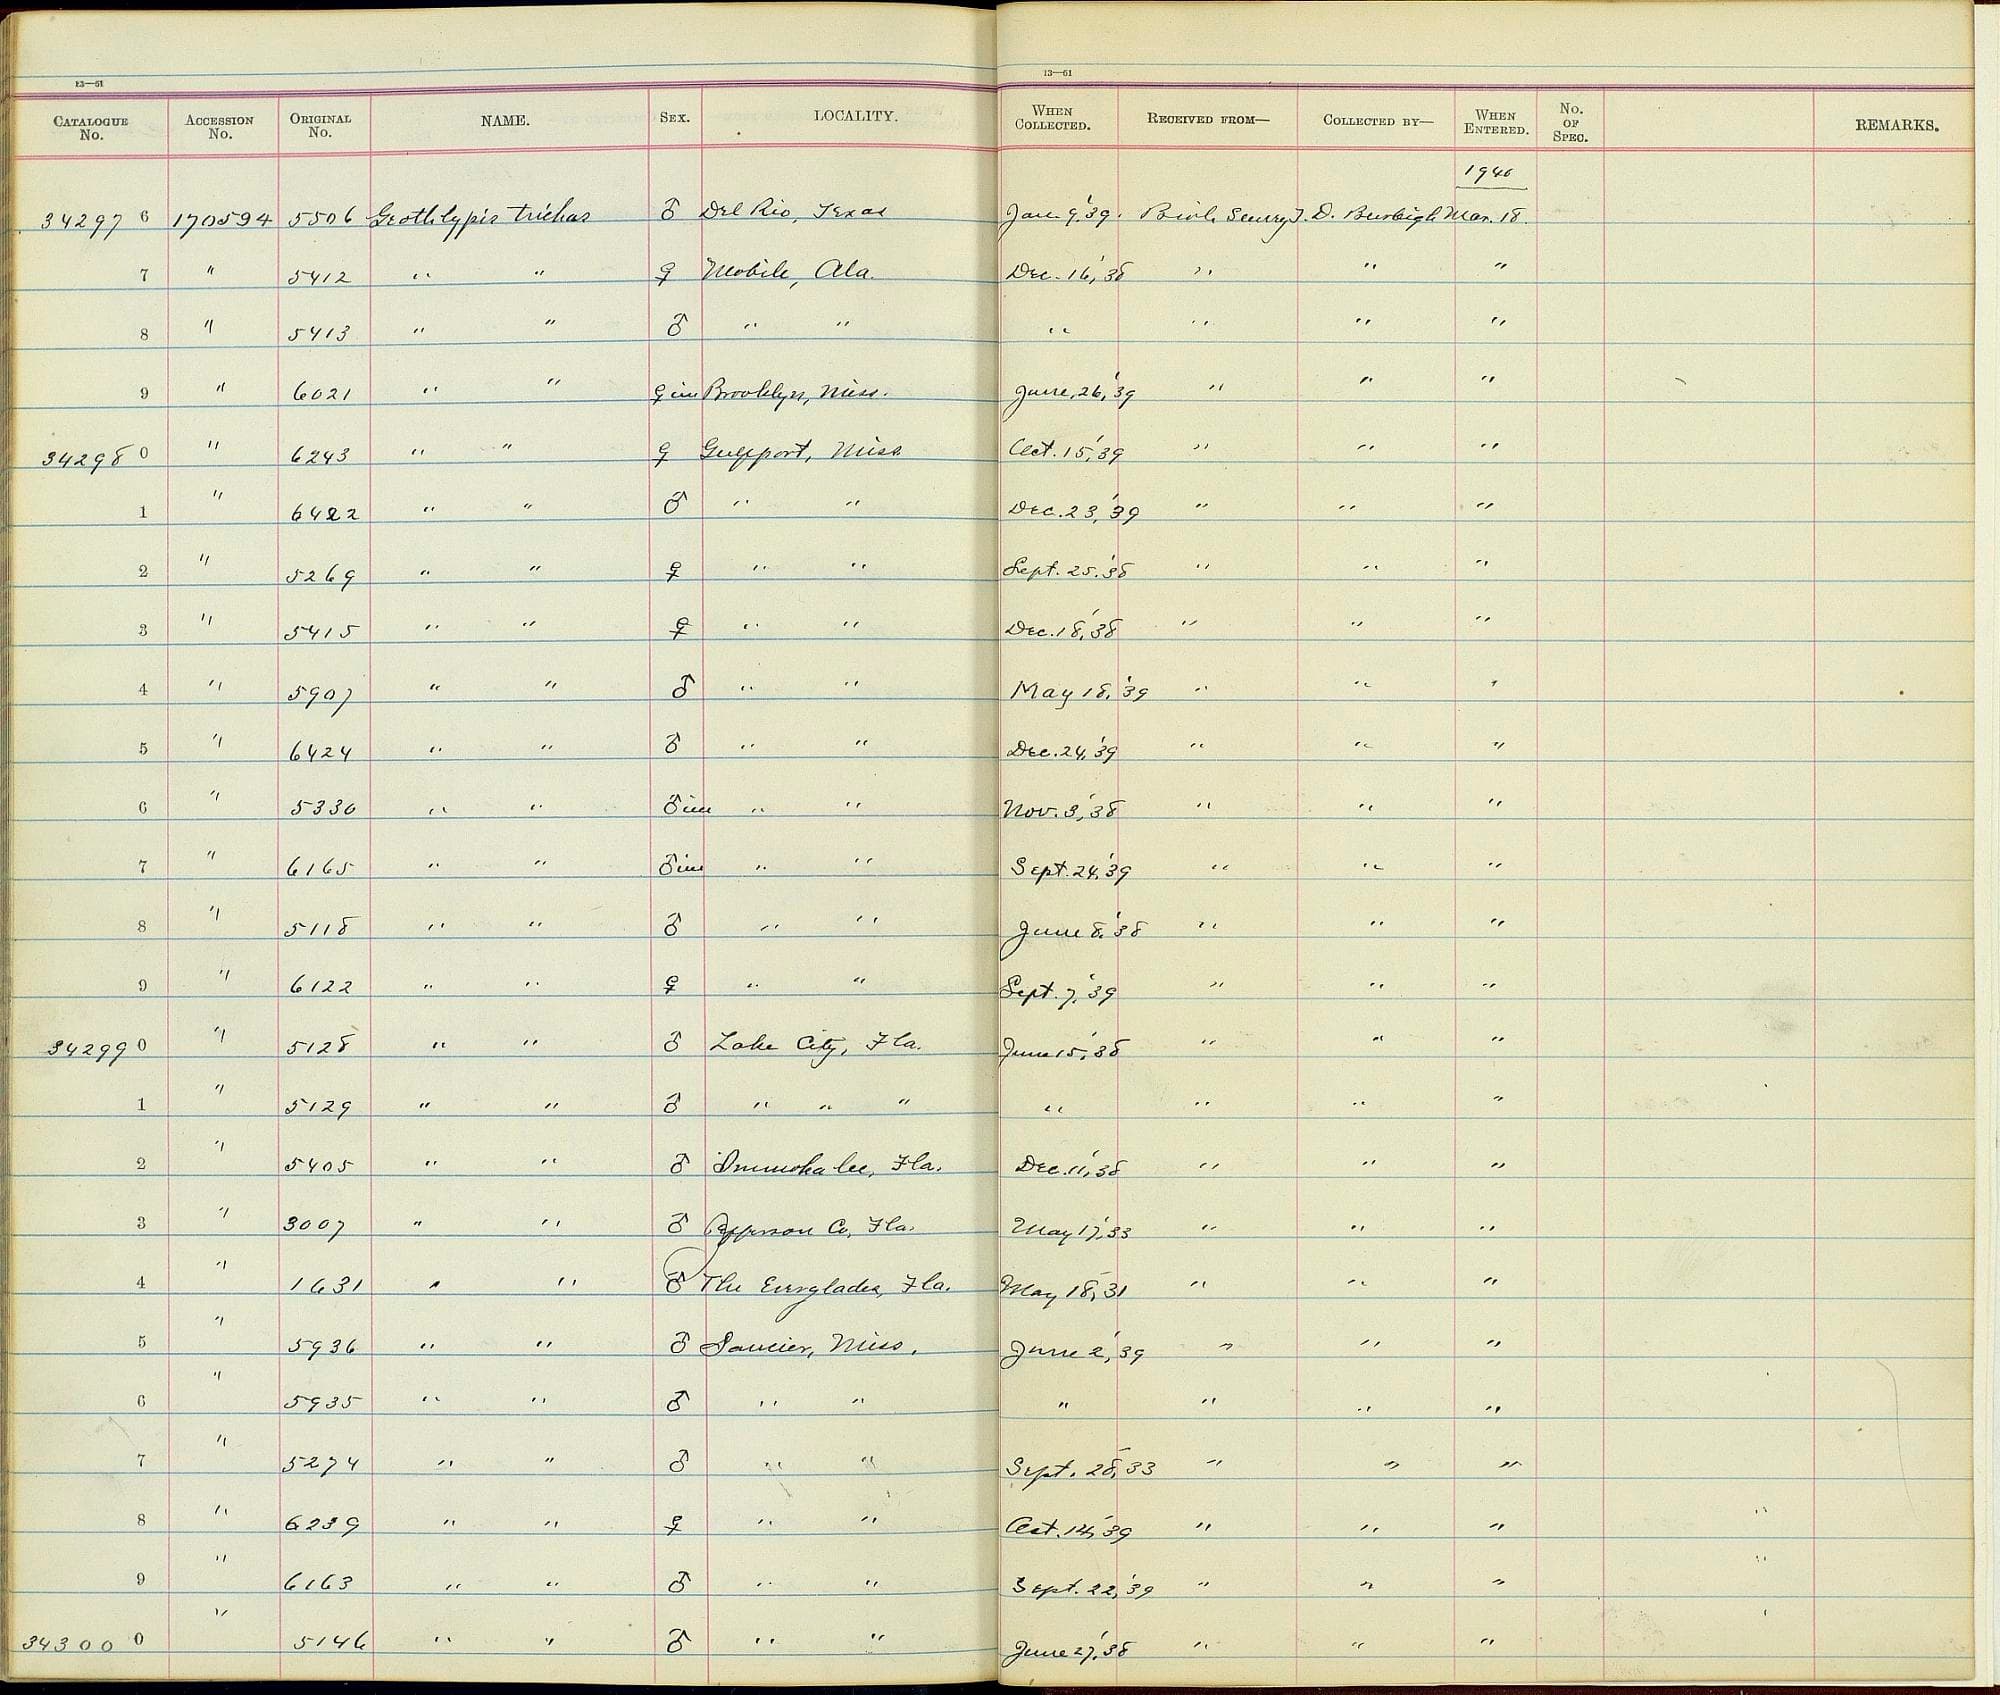 13—61 13—61
CATALOGUE No. ACCESSION No. ORIGINAL No. NAME. SEX. LOCALITY. WHEN COLLECTED. RECEIVED FROM— COLLECTED BY— WHEN ENTERED. No. OF SPEC. REMARKS.
1940
34297 6 170594 5506 Geothlypis trichas ♂ Del Rio, Texas Jan. 9, '39. Biol. Survey T. D. Burleigh Mar. 18.
7 " 5412 " " ♀ Mobile, Ala. Dec. 16, '38 " " "
8 " 5413 " " ♂ " " " " " "
9 " 6021 " " ♀ im Brooklyn, Miss. June, 26, '39 " " "
34298 0 " 6243 " " ♀ Gulfport, Miss Oct. 15, '39 " " "
1 " 6422 " " ♂ " " Dec. 23, '39 " " "
2 " 5269 " " ♀ " " Sept. 25, '38 " " "
3 " 5415 " " ♀ " " Dec. 18, '38 " " "
4 " 5907 " " ♂ " " May 18, '39 " " "
5 " 6424 " " ♂ " " Dec. 24, '39 " " "
6 " 5330 " " ♂ im " " Nov. 3, '38 " " "
7 " 6165 " " ♂ im " " Sept. 24, '39 " " "
8 " 5118 " " ♂ " " June 8, '38 " " "
9 " 6122 " " ♀ " " Sept. 7, '39 " " "
34299 0 " 5128 " " ♂ Lake City, Fla. June 15, '38 " " "
1 " 5129 " " ♂ " " " " " " "
2 " 5405 " " ♂ Immokalee, Fla. Dec. 11, '38 " " "
3 " 3007 " " ♂ Jefferson Co, Fla. May 17, '33 " " "
4 " 1631 " " ♂ The Everglades, Fla. May 18, '31 " " "
5 " 5936 " " ♂ Saucier, Miss. June 2, '39 " " "
6 " 5935 " " ♂ " " " " " "
7 " 5274 " " ♂ " " Sept. 28, '33 " " "
8 " 6239 " " ♀ " " Oct. 14, '39 " " "
9 " 6163 " " ♂ " " Sept. 22, '39 " " "
34300 0 " 5146 " " ♂ " " June 27, '38 " " "